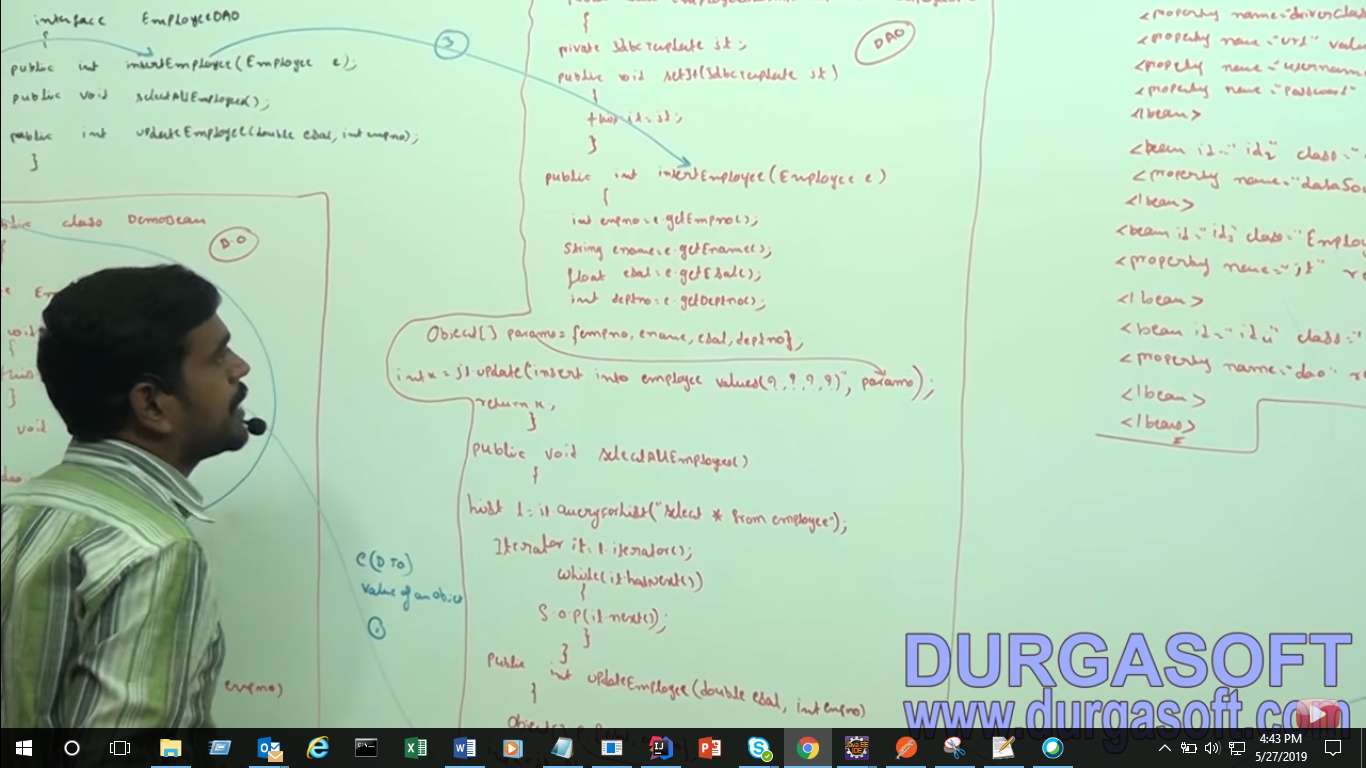 interface EmployeeDAO
{
public int insertEmployee(Employee e);
public void selectAllEmployee();
public int updateEmployee(double esal, int empno);
}
3
class DemoBean
D.O
{
void
{
}
void
empno)
e(DTO)
value of an object
1
{
DAO
private JdbcTemplate jt;
public void setJt(JdbcTemplate jt)
{
this.jt=jt;
}
public int insertEmployee(Employee e)
{
int empno=e.getEmpno();
String ename=e.getEname();
float esal=e.getEsal();
int deptno=e.getDeptno();
Object[] params={empno, ename, esal, deptno};
int x=jt.update("insert into employee values(?,?,?,?)", params);
return x;
}
public void selectAllEmployee()
{
List l=jt.queryForList("select * from employee");
Iterator it=l.iterator();
while(it.hasNext())
{
S.o.p(it.next());
}
}
public int updateEmployee(double esal, int empno)
{
<property name="driverClass
<property name="url" value
<property name="username
<property name="password"
</bean>
<bean id="id2" class="
<property name="dataSo
</bean>
<bean id="id3" class="Employ
<property name="jt" r
</bean>
<bean id="id4" class="
<property name="dao" re
</bean>
</beans>
DURGASOFT
www.durgasoft.com
4:43 PM
5/27/2019